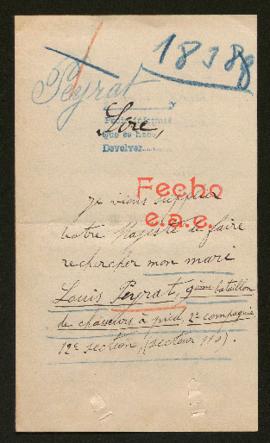 18388
Peyrat
Sire,
Devolver
Fecho
e.a.e.
je viens supplier
votre Majesté de faire
rechercher mon mari
Louis Peyrat, 9ème bataillon
de chasseurs à pied 2e compagnie
12e section, (secteur 110).